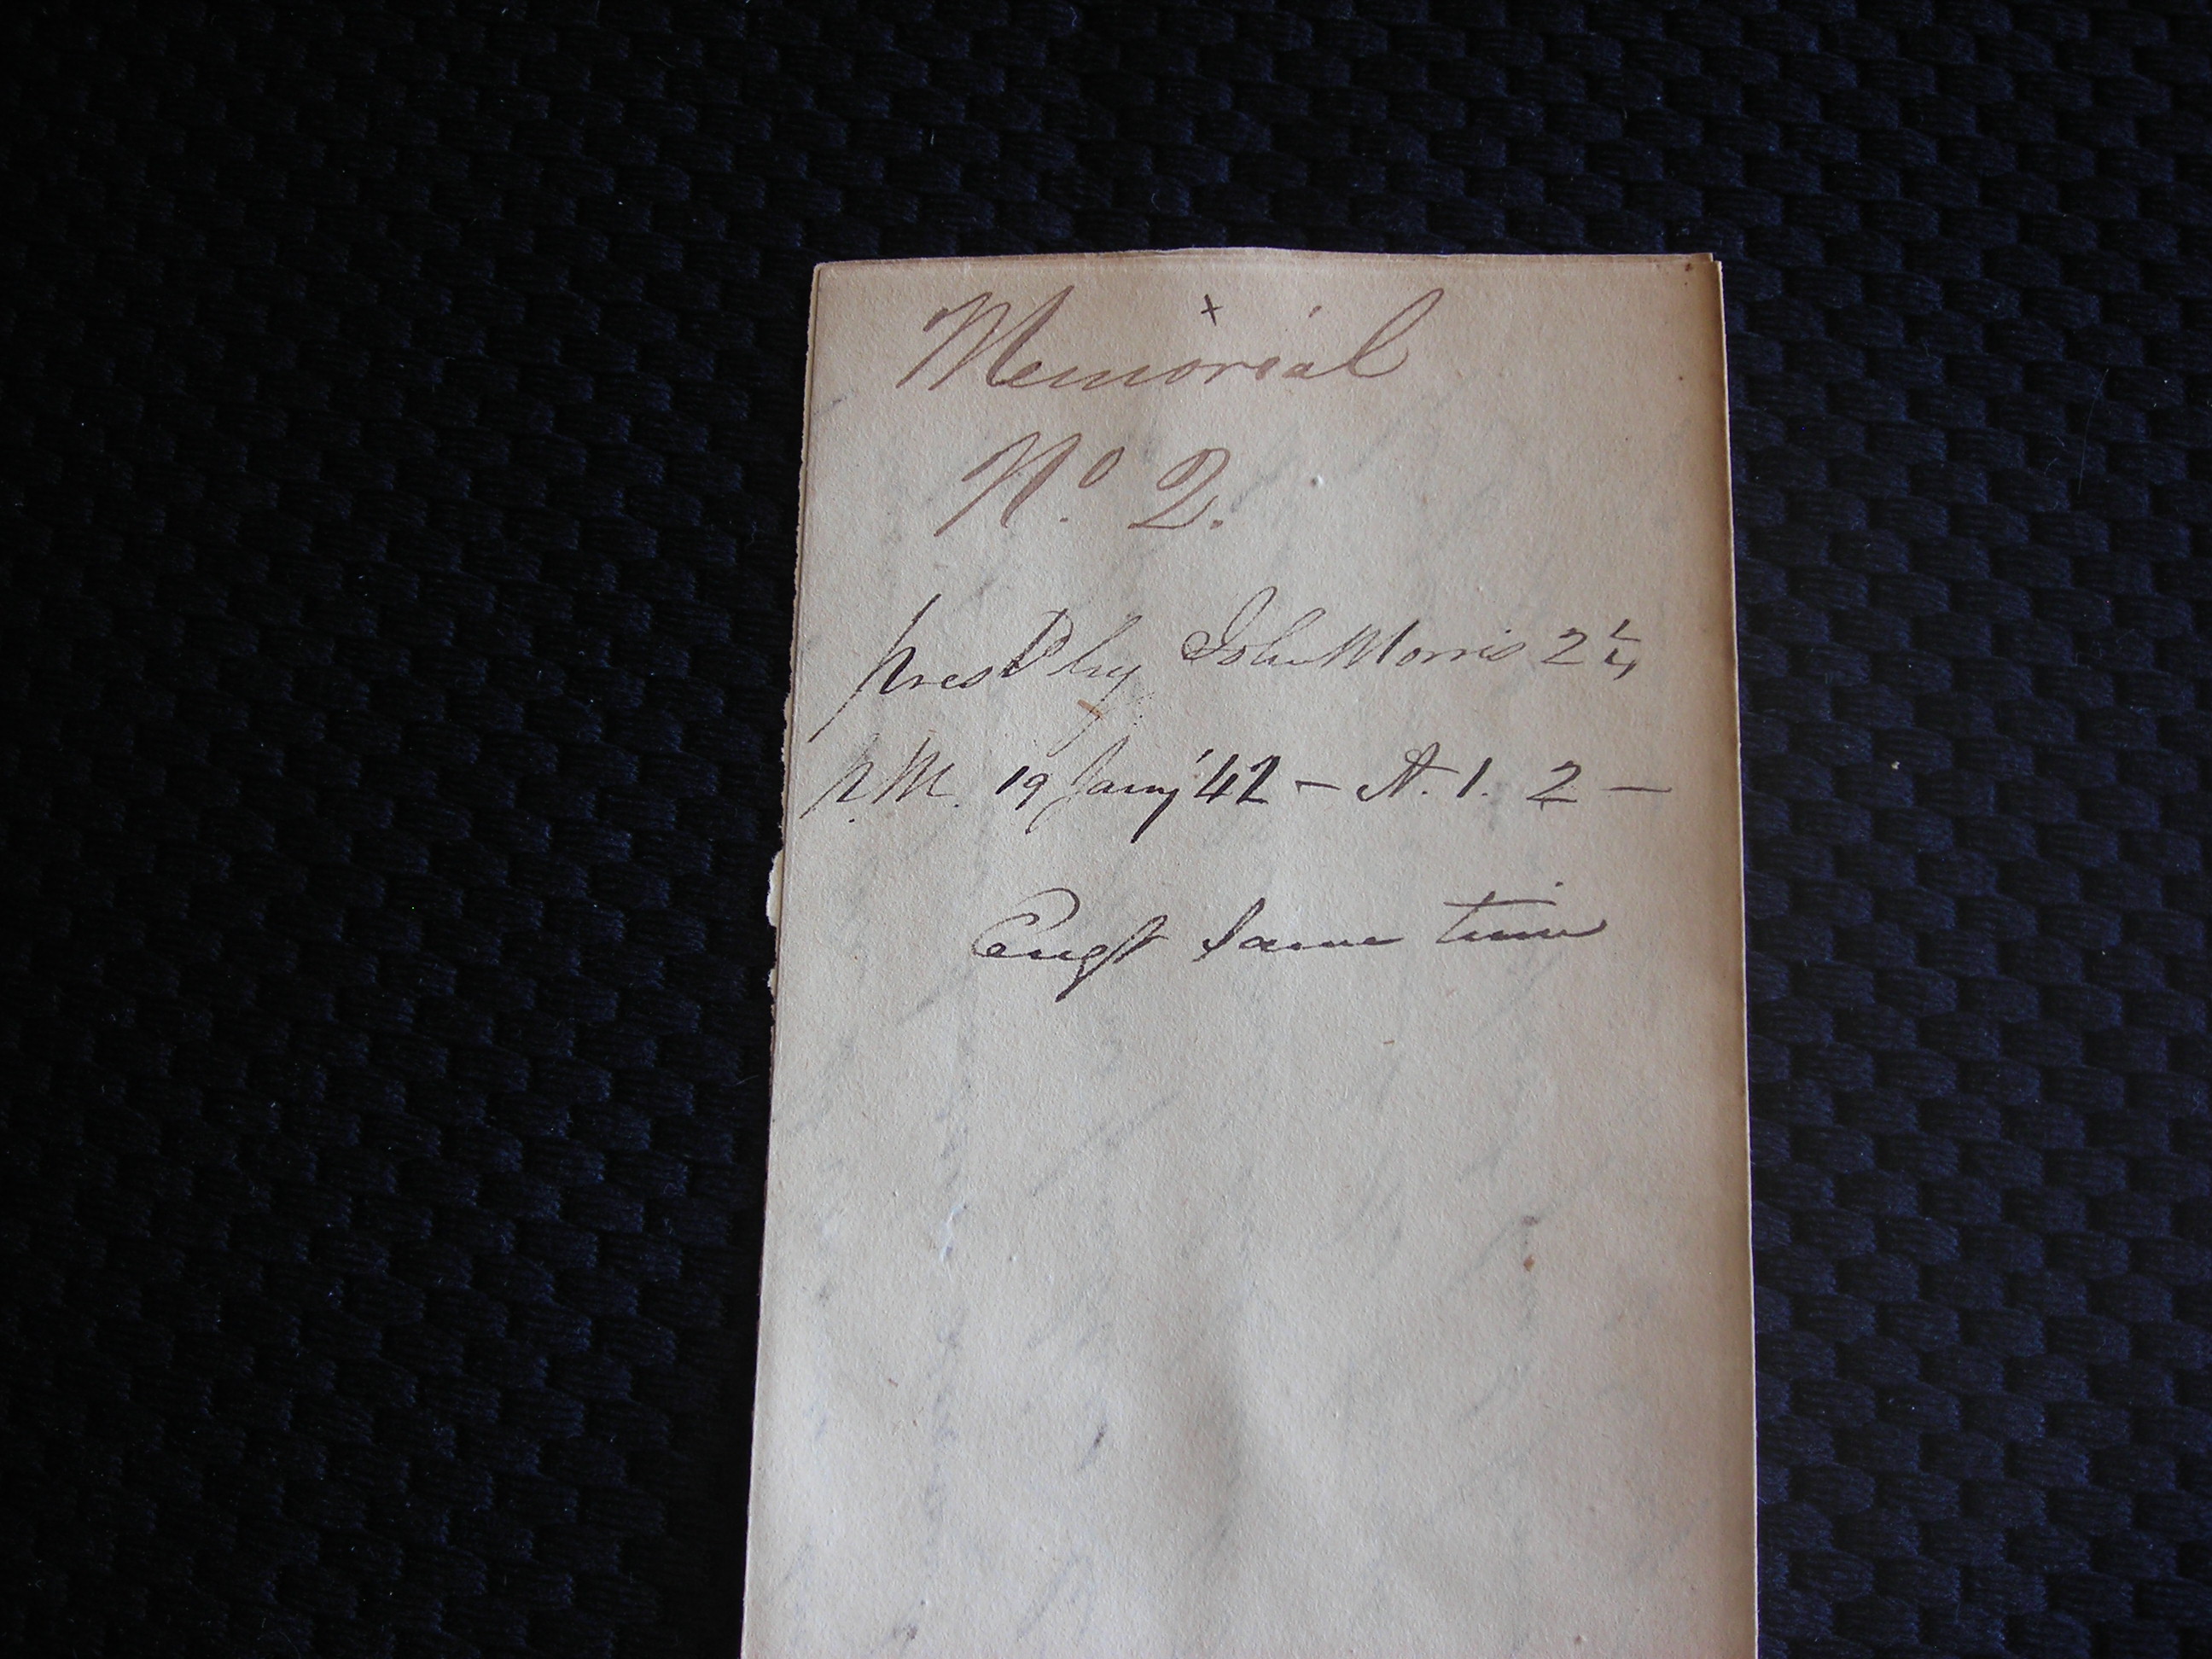 x
Memorial
No. 2.
presd by John Morris 2¼
p.M. 19 Jany '42 - A. 1. 2 -
same time